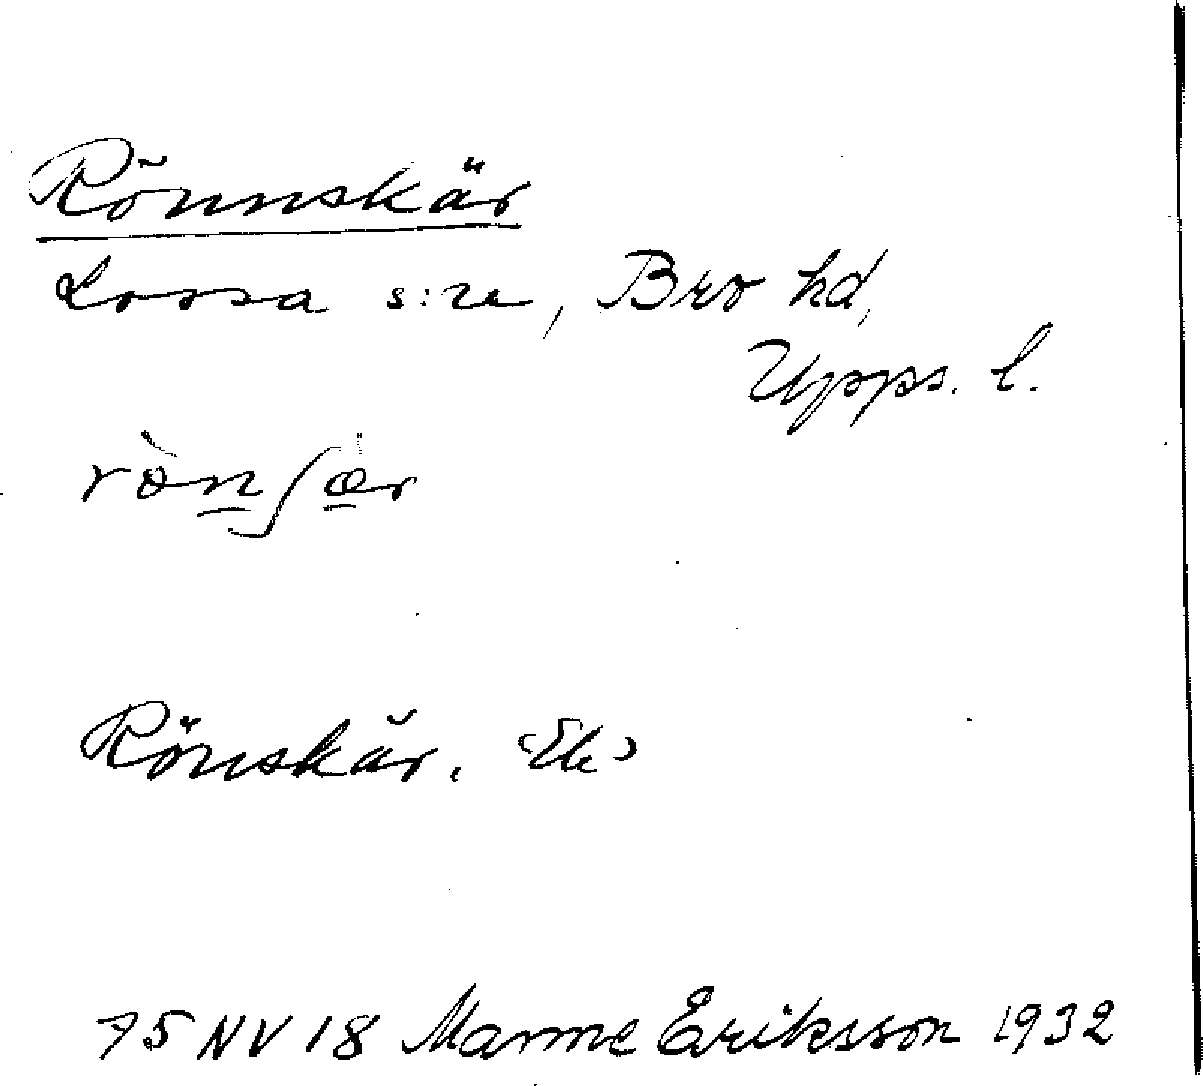 Rönnskär
Lossa s:n, Bro hd,
Upps. l.
rònʃær
Rönskär. (Ek)
75 NV 18 Manne Eriksson 1932